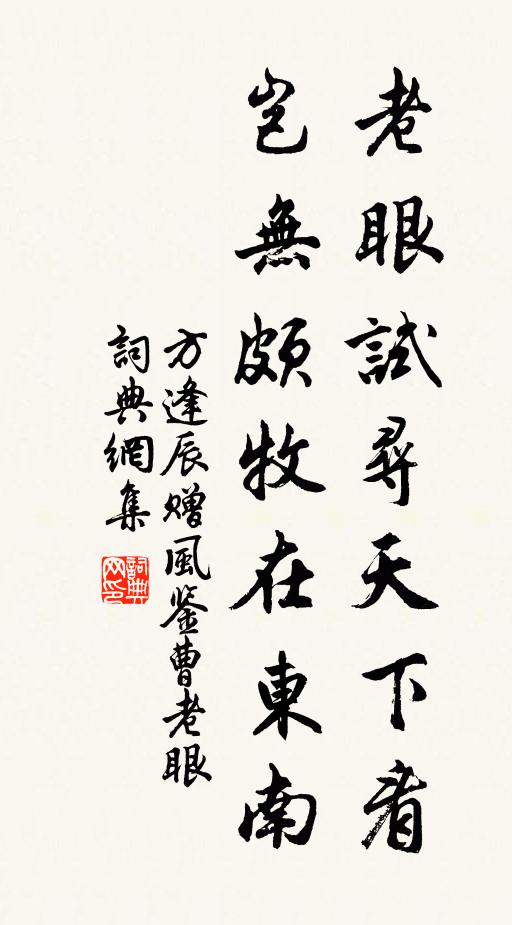 老眼試尋天下看
豈無頗牧在東南
方逢辰赠風鉴曹老眼
詞典網集
詞典网印